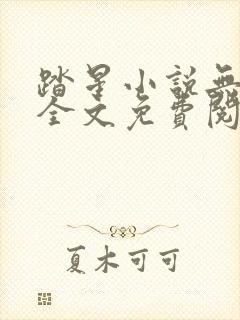 踏星小說無
全文免費閱
夏木可可